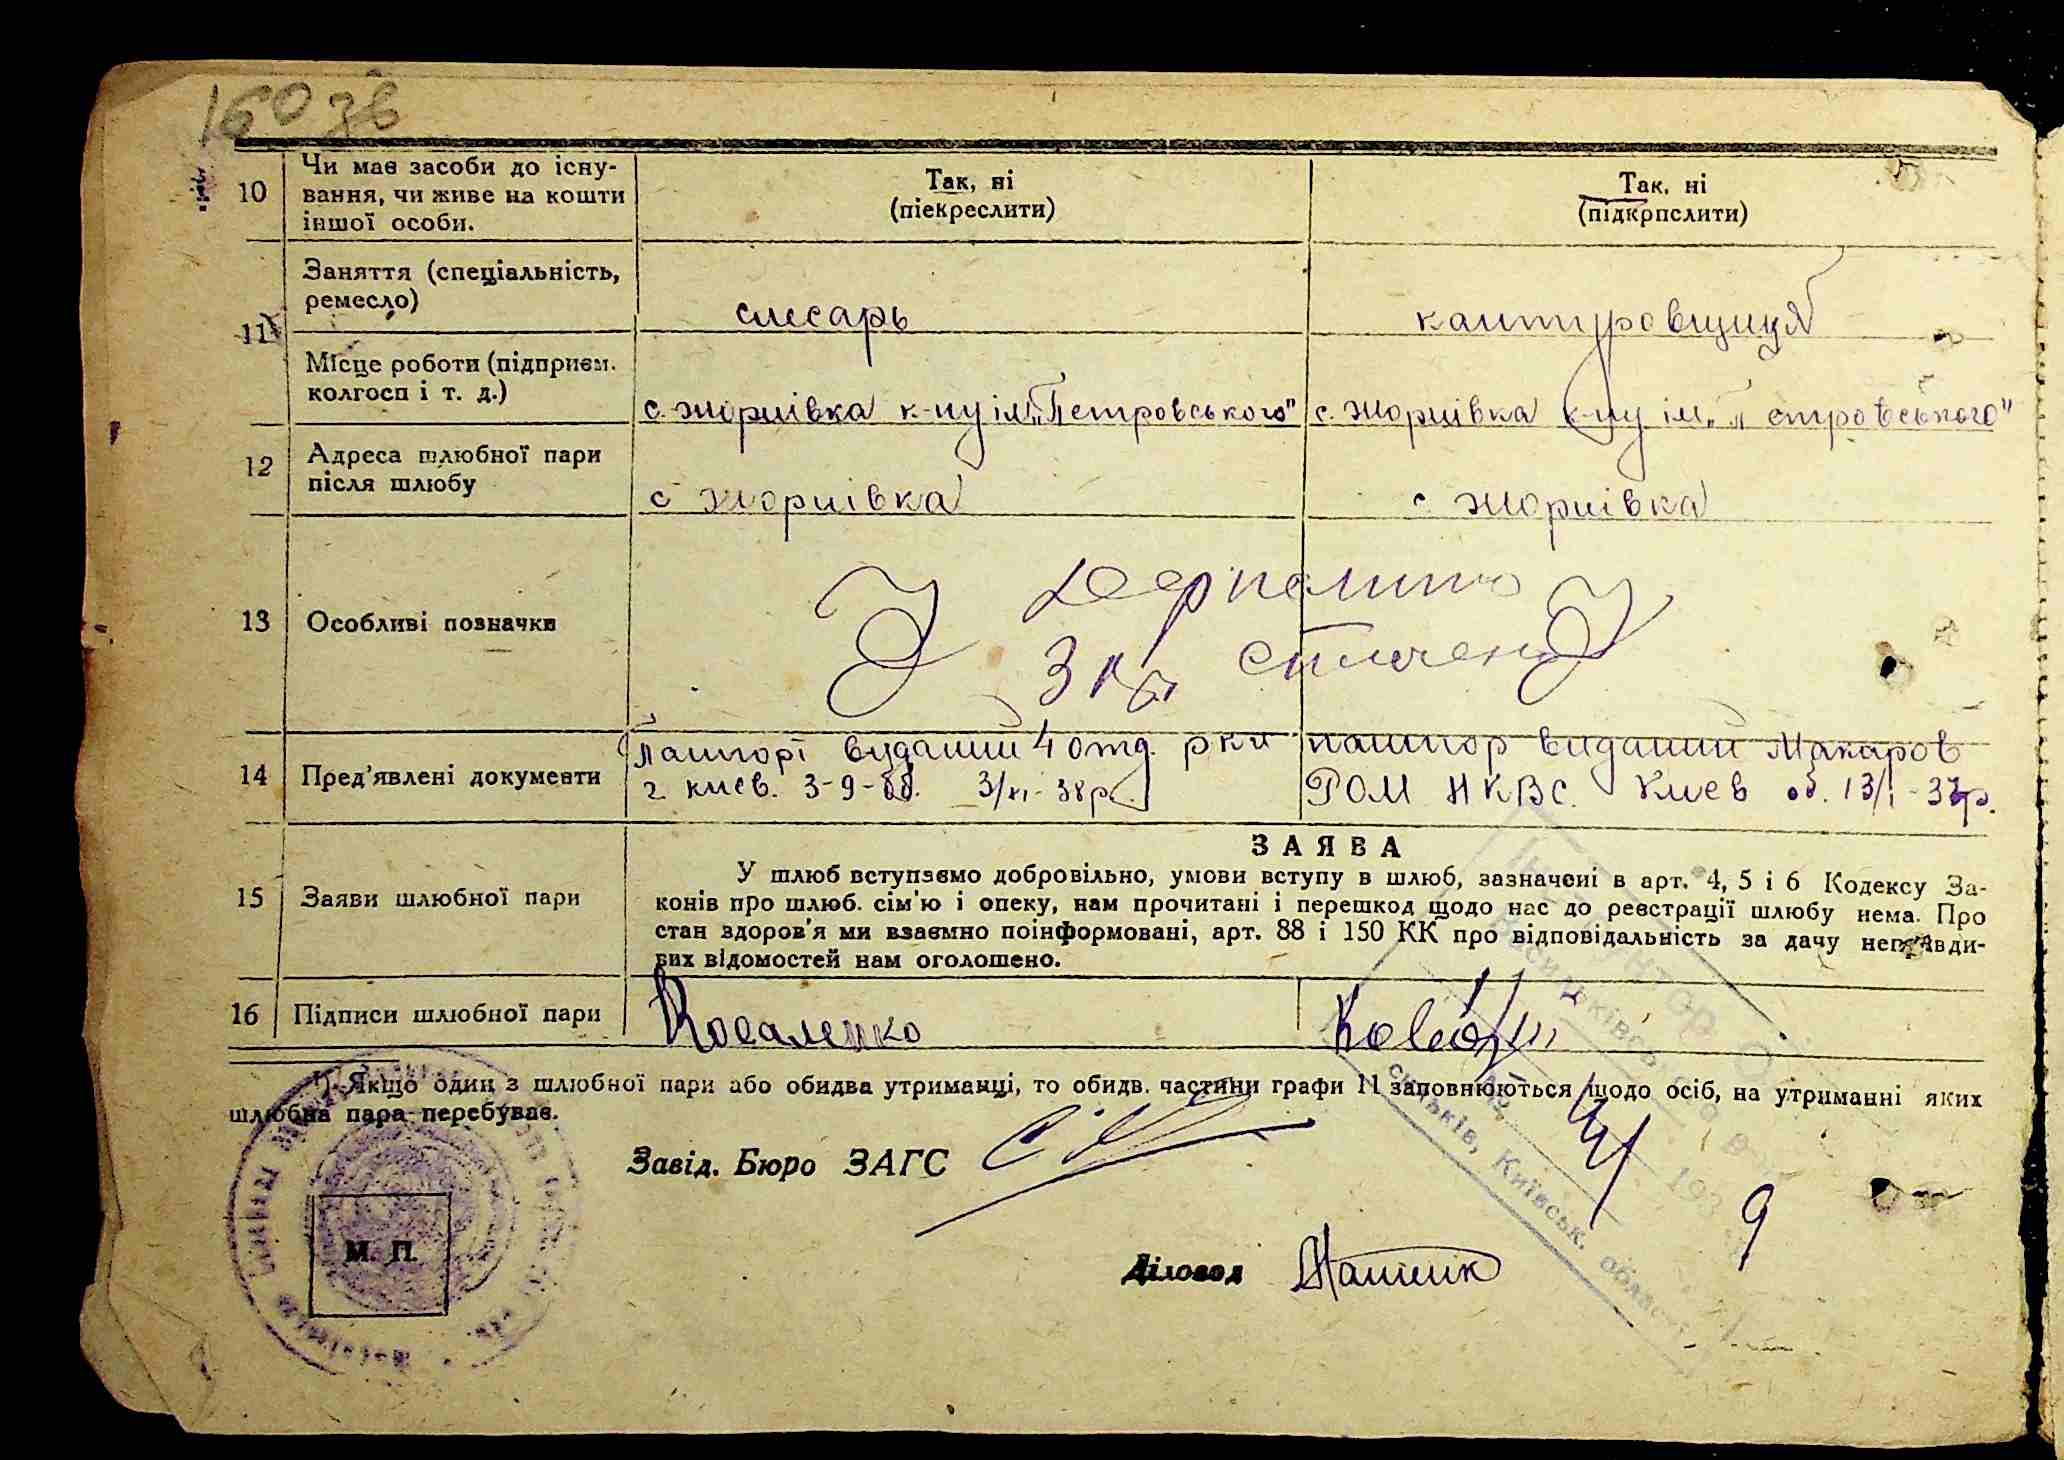 160 зв
10 Чи має засоби до існу-
вання, чи живе на кошти
іншої особи.
Так, ні
(піекреслити)
Так, ні
(підкрпслити)
11
Заняття (спеціальність,
ремесло)
слесарь
Місце роботи (підприєм.
колгосп і т. д.)
с. Жорнівка к-пу ім. „Петровського"
с. Жорнівка к-пу ім. „Петровського"
12 Адреса шлюбної пари
після шлюбу
с Жорнівка
с. Жорнівка
13 Особливі позначки
Держмито
3 крб сплочено
14 Пред'явлені документи
Пашпорт виданий 4 отд. рки
г Киев. 3/XI-38р.
пашпор виданий Макаров
РОМ НКВС. Киев об. 13/I-37р.
15 Заяви шлюбної пари
ЗАЯВА
У шлюб вступаємо добровільно, умови вступу в шлюб, зазначені в арт. 4, 5 і 6 Кодексу За-
конів про шлюб. сім'ю і опеку, нам прочитані і перешкод щодо нас до реєстрації шлюбу нема. Про
стан здоров'я ми взаємно поінформовані, арт. 88 і 150 КК про відповідальність за дачу неправди-
вих відомостей нам оголошено.
16 Підписи шлюбної пари
Коваленко
Якщо один з шлюбної пари або обидва утриманці, то обидв. частини графи 11 заповнюються щодо осіб, на утриманні яких
шлюбна пара перебуває.
Завід. Бюро ЗАГС
М. П.
Діловод
193
9
Київськ. області